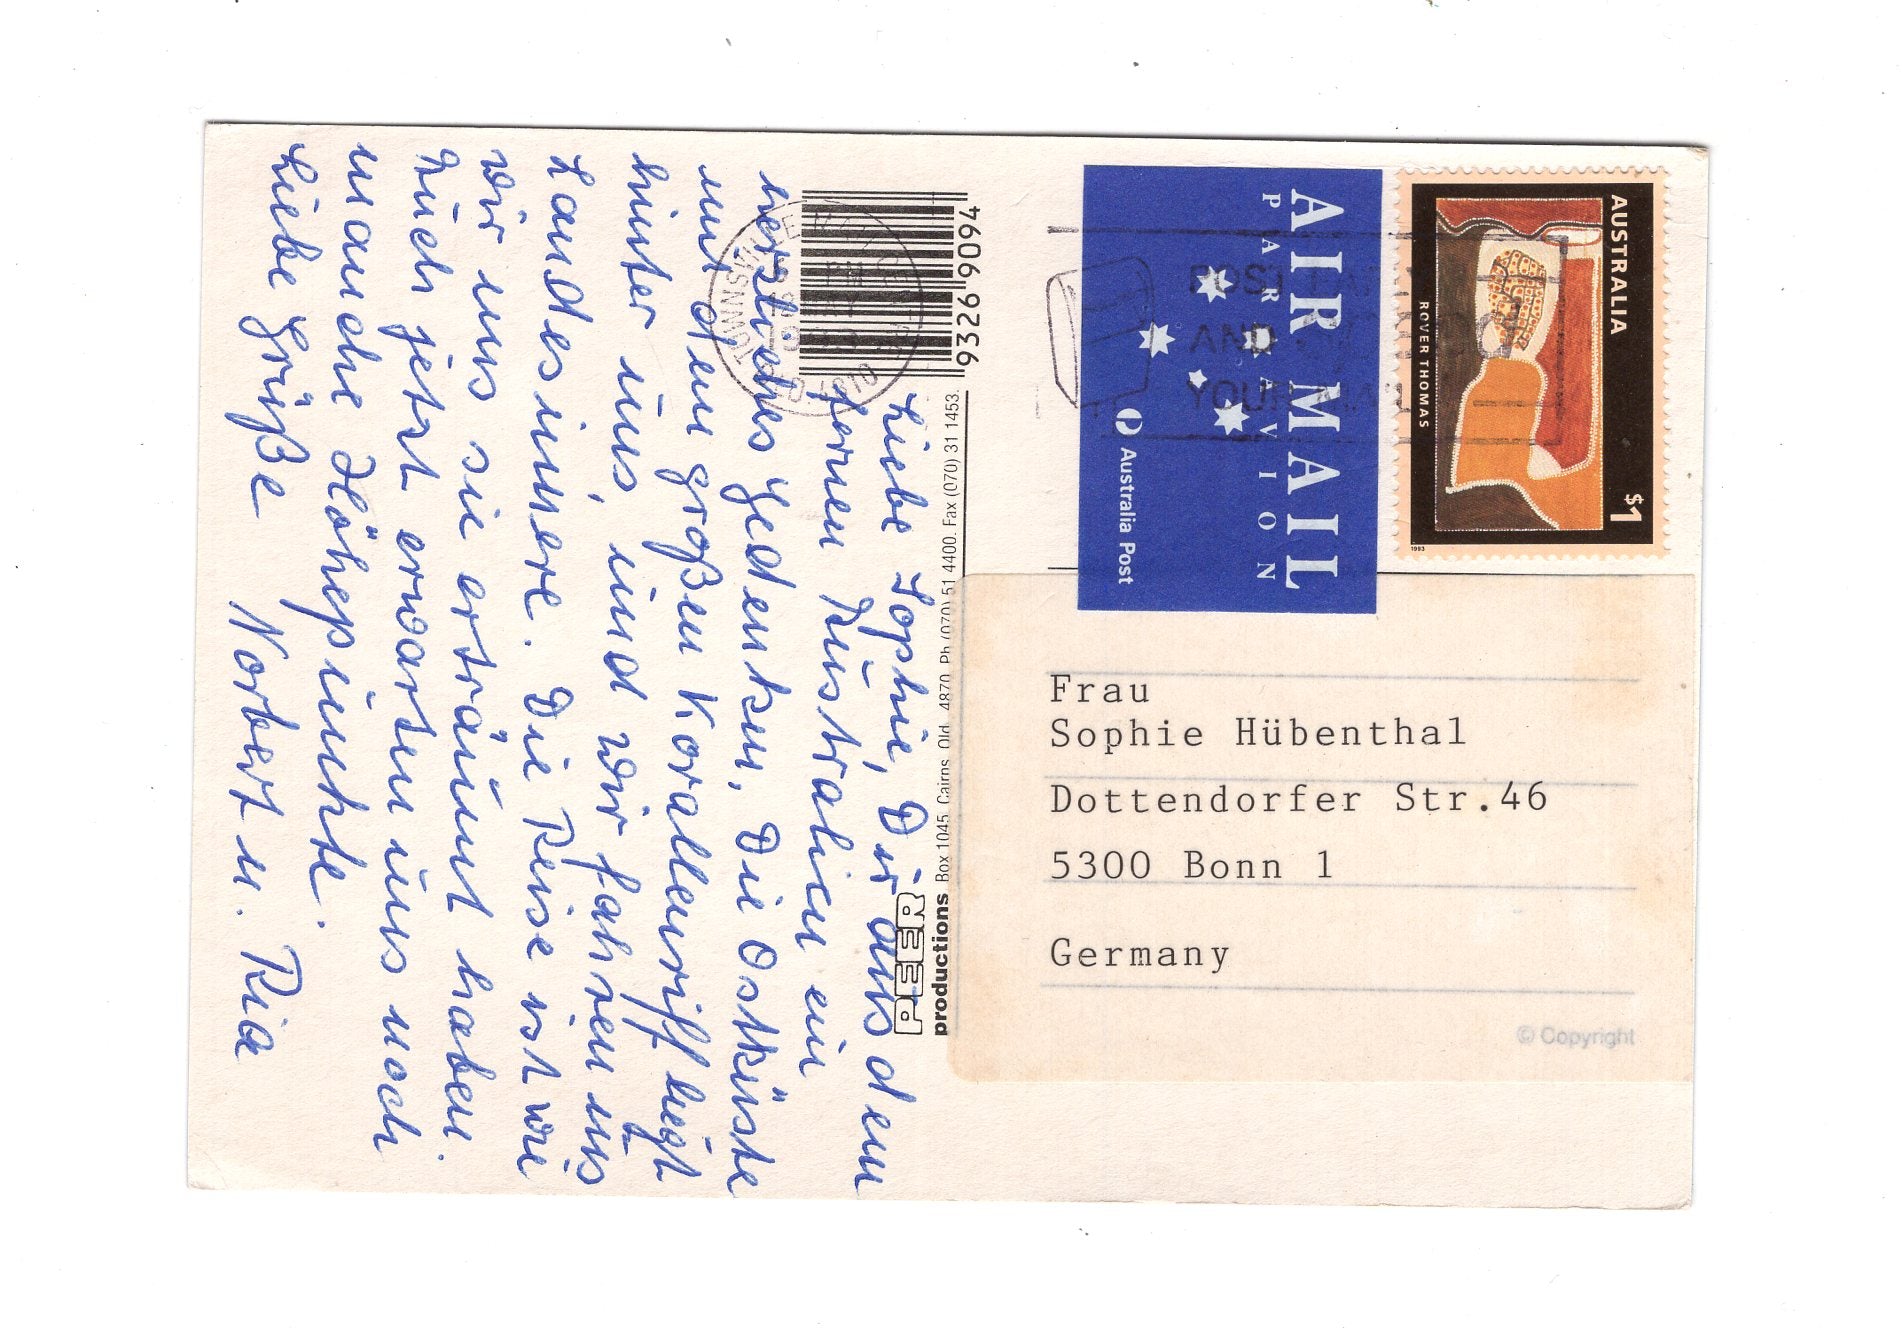 Liebe Sophie, Dir aus dem
fernen Australien ein
herzliches Gedenken. Die Ostküste
mit dem großen Korallenriff liegt
hinter uns, und wir fahren ins
Landesinnere. Die Reise ist wie
wir uns sie erträumt haben.
Auch jetzt erwarten uns noch
manche Höhepunkte.
Liebe Grüße Norbert u. Ria
9326 9094
PEER
productions Box 1045, Cairns, Qld. 4870. Ph (070) 51 4400. Fax (070) 31 1453.
TOWNSVILLE
QLD. 4810
AIR MAIL
PAR AVION
Australia Post
POST
AND
YOUR MAIL
AUSTRALIA
ROVER THOMAS
$1
1993
Frau
Sophie Hübenthal
Dottendorfer Str.46
5300 Bonn 1
Germany
© Copyright